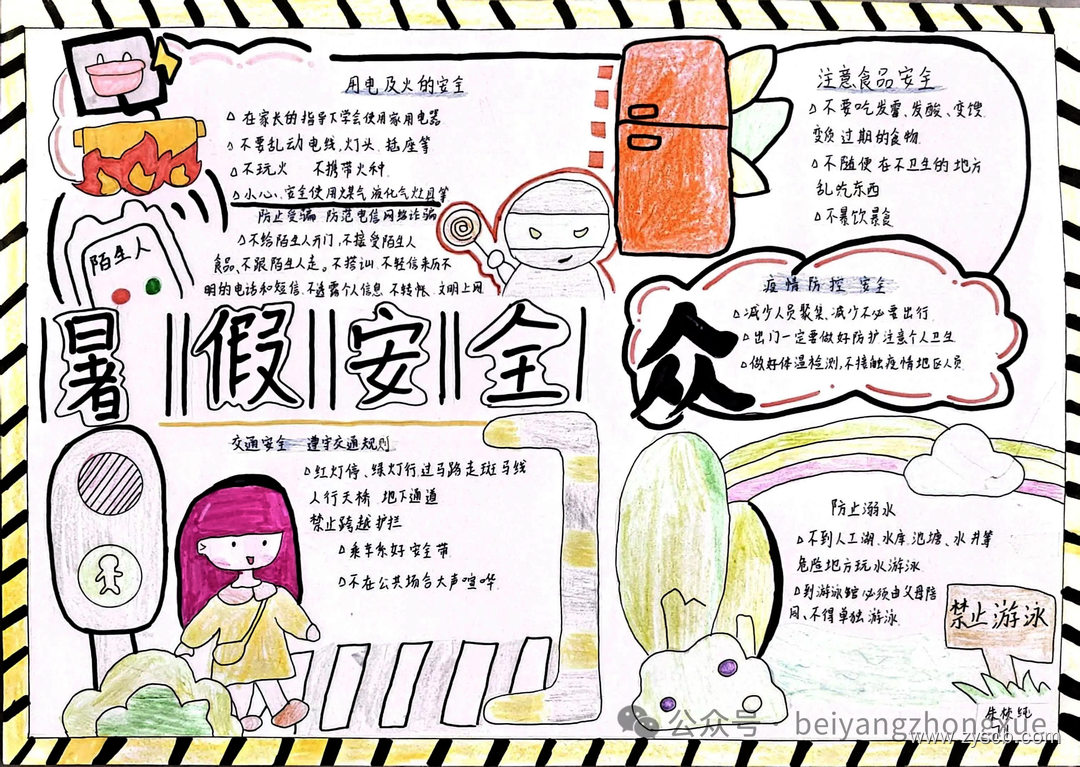 用电及火的安全
△在家长的指导下学会使用家用电器
△不要乱动电线,灯头、插座等
△不玩火 不携带火种.
△小心、安全使用煤气液化气灶具等
防止受骗 防范电信网络诈骗
△不给陌生人开门,不接受陌生人
食品、不跟陌生人走。不搭讪.不轻信来历不
明的电话和短信.不透露个人信息.不转帐.文明上网
陌生人
注意食品安全
△不要吃发霉、发酸、变馊
变质过期的食物.
△不随便在不卫生的地方
乱吃东西
△不暴饮暴食
疫情防控安全
△减少人员聚集、减少不必要出行.
△出门一定要做好防护注意个人卫生
△做好体温检测,不接触疫情地区人员.
暑假安全
众
交通安全 遵守交通规则
△红灯停、绿灯行.过马路走斑马线
人行天桥 地下通道
禁止跨越护拦
△乘车系好安全带.
△不在公共场合大声喧哗.
防止溺水
△不到人工湖、水库、池塘、水井等
危险地方玩水游泳
△到游泳馆必须由父母陪
同、不得单独游泳.
禁止游泳
公众号 beiyangzhongxue
www.zyscb.com